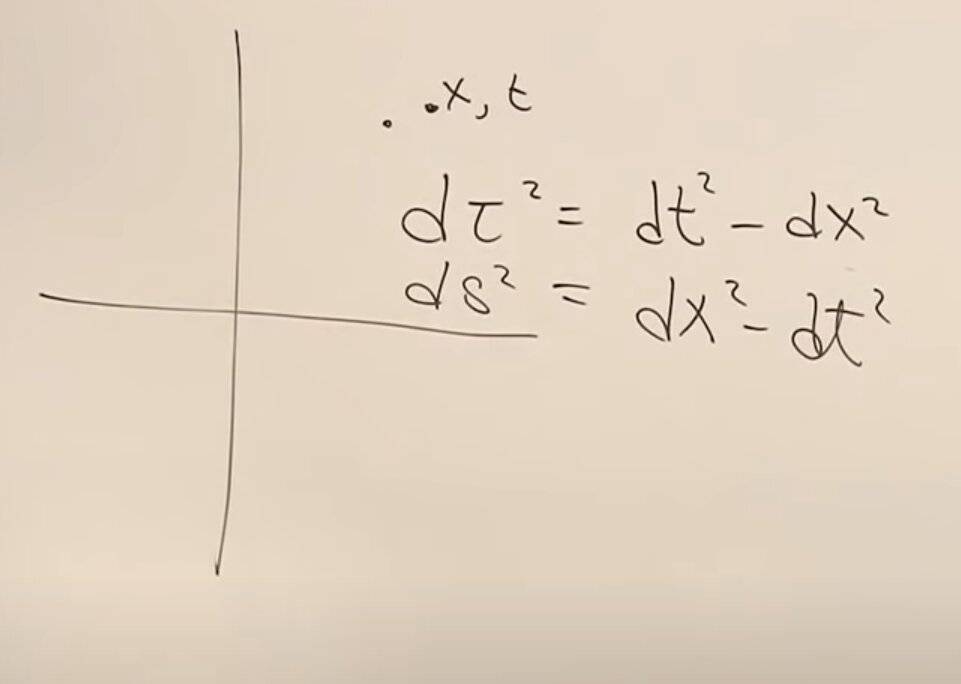 x, t
dτ² = dt² - dx²
ds² = dx² - dt²